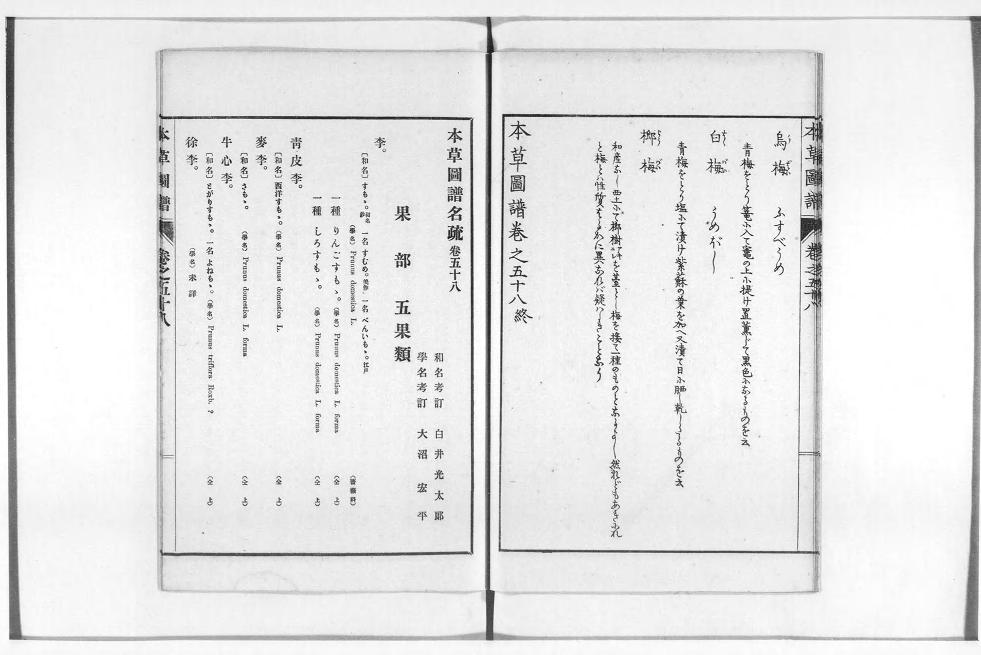 本草圖譜 卷之五十八
烏梅 ふすべうめ
青梅をとり篭に入て竈の上に提け置薫じて黒色になるものを云
白梅 うめぼし
青梅をとり塩にて漬け紫蘇の葉を加へ又漬て日に晒し乾したるものを云
榔梅
和産なし
と梅とは性質
本草圖譜卷之五十八終
本草圖譜名疏 卷五十八
和名考訂 白井光太郎
學名考訂 大沼宏平
果部 五果類
李。
〔和名〕すもゝ。和名鈔 一名 すむめ。 一名 べんいもゝ。
(學名) Prunus domestica L. (薔薇科)
一種 りんごすもゝ。(學名) Prunus domestica L. forma (仝 上)
一種 しろすもゝ。(學名) Prunus domestica L. forma (仝 上)
靑皮李。
〔和名〕西洋すもゝ。(學名) Prunus domestica L. (仝 上)
麥李。
〔和名〕さもゝ。(學名) Prunus domestica L. forma (仝 上)
牛心李。
〔和名〕とがりすもゝ。一名 よねもゝ。(學名) Prunus triflora Roxb. ? (仝 上)
徐李。
(學名) 未詳
本草圖譜 卷之五十八